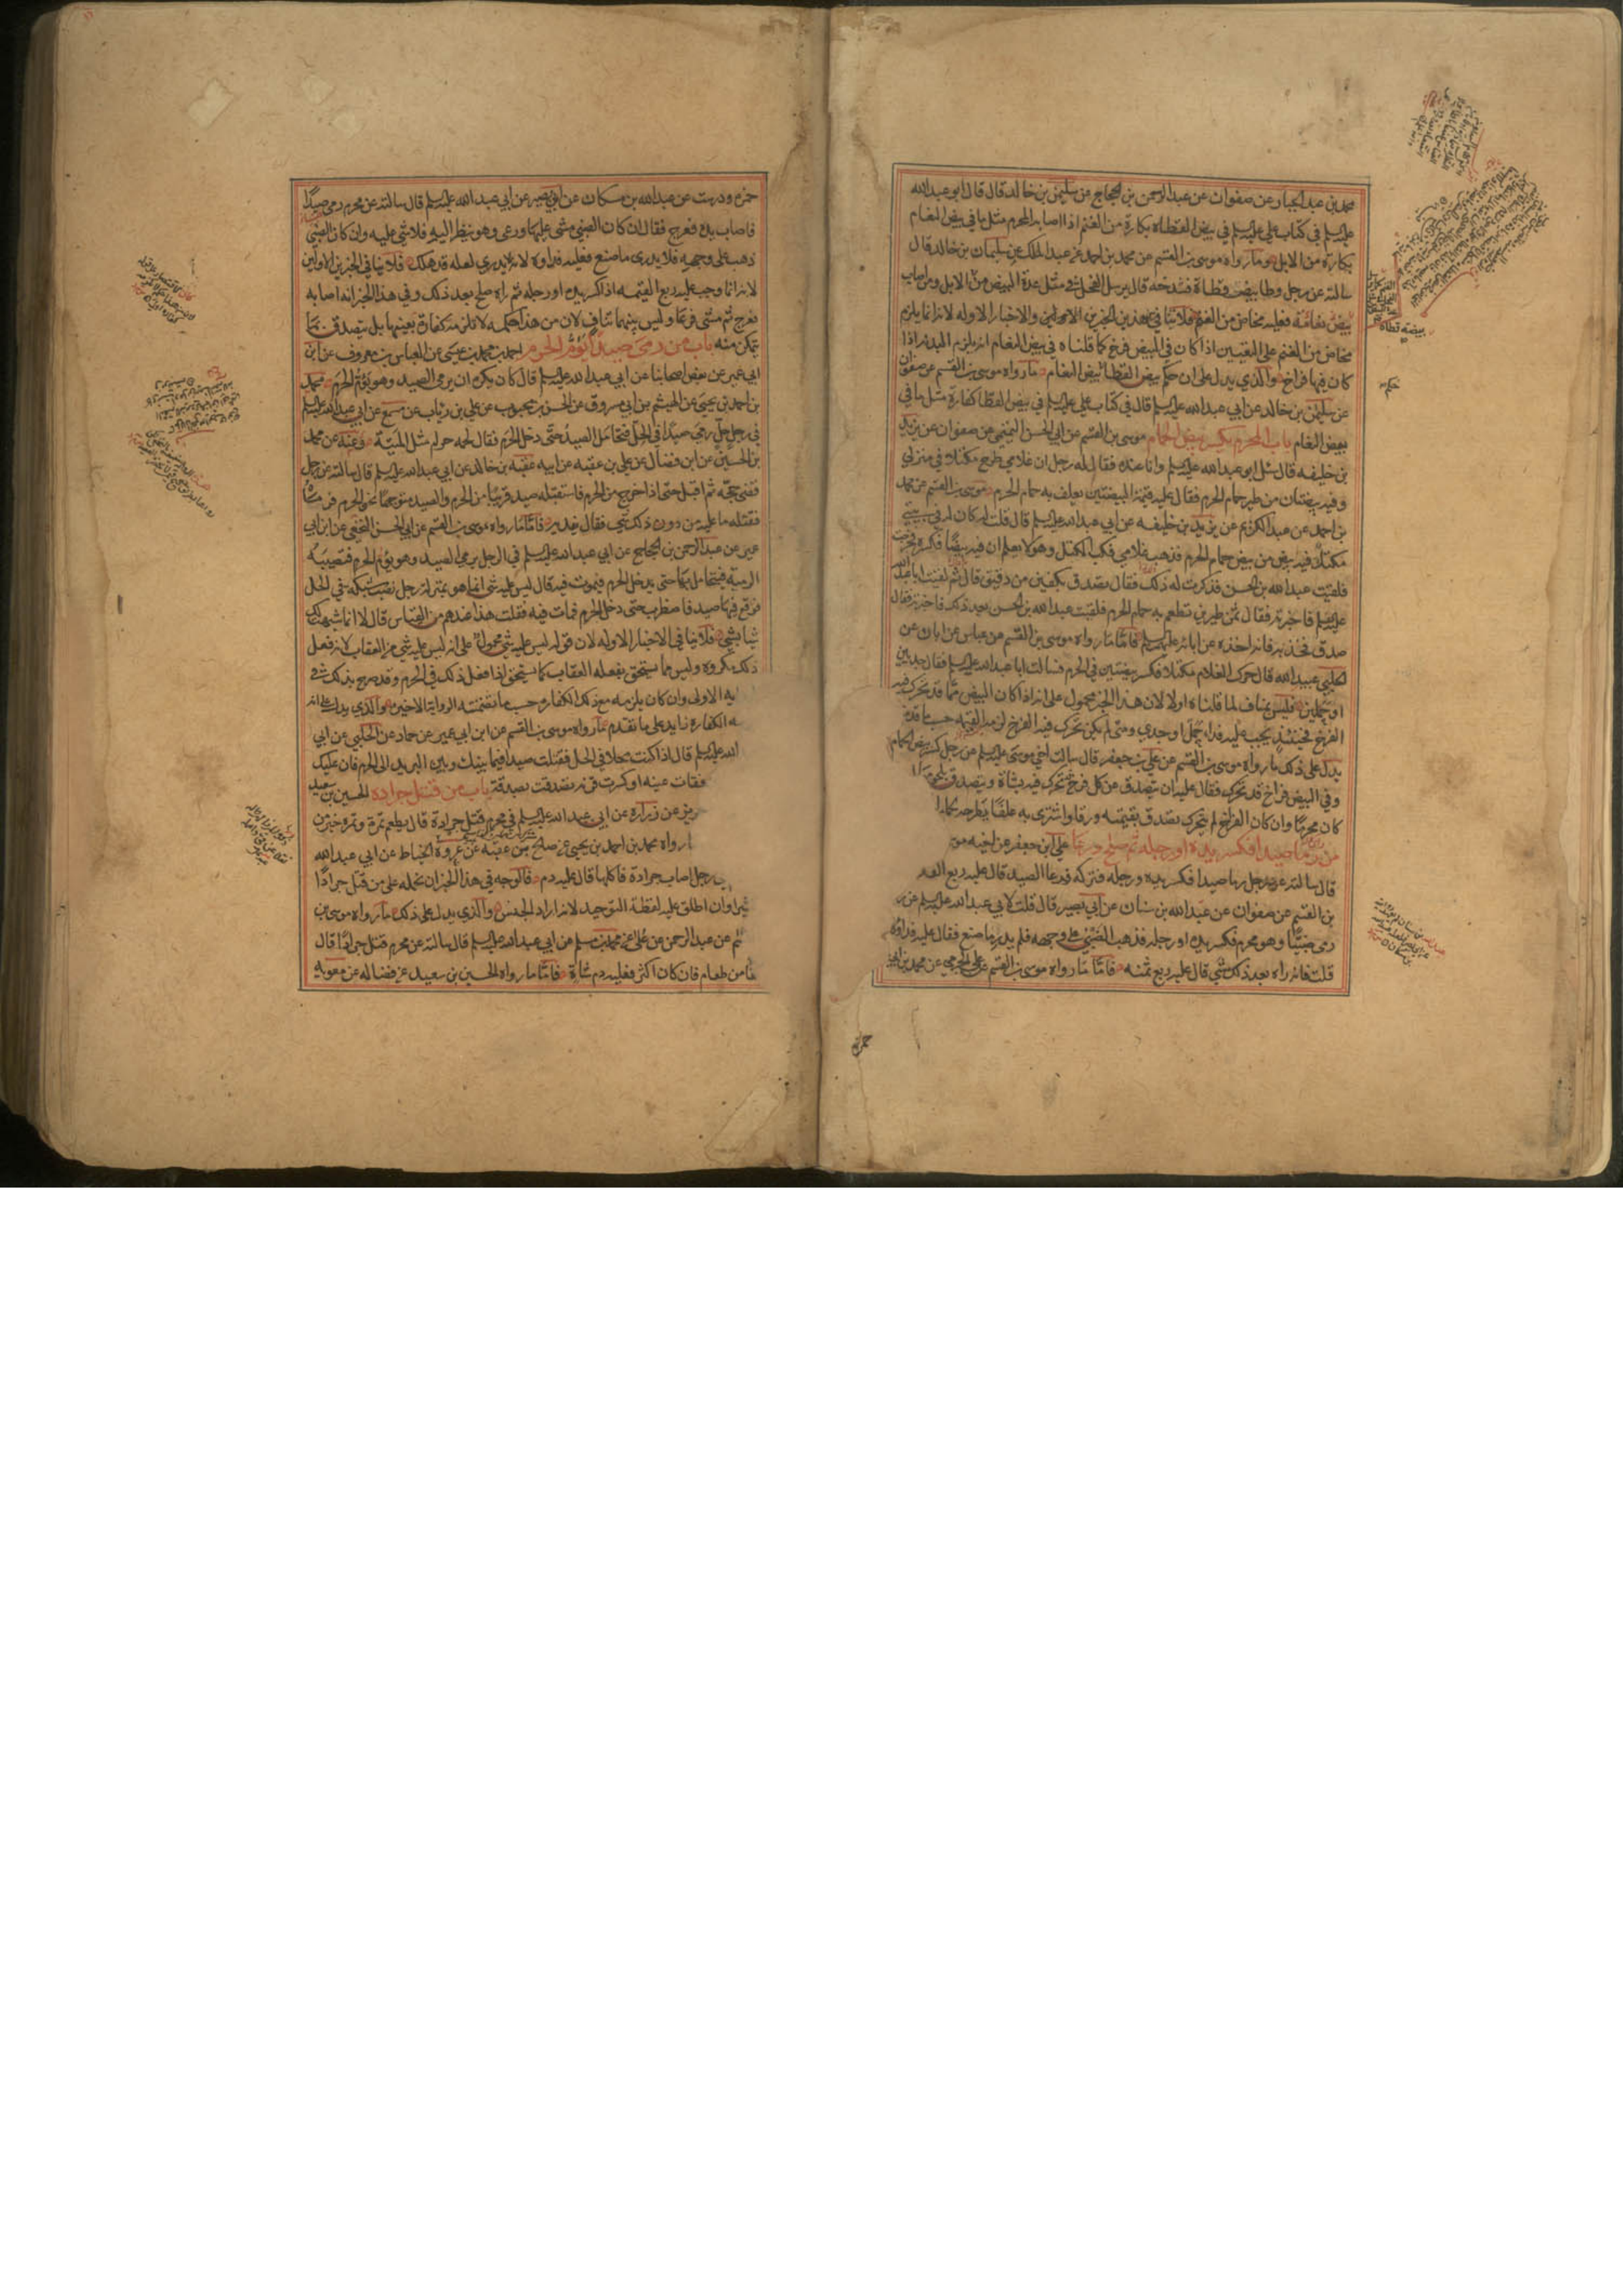 محمد بن عبد الجبار عن صفوان عن عبد الرحمن بن الحجاج عن سليمن بن خالد قال قال ابو عبد الله
عليه السلم في كتاب علي عليه السلم في بيض القطاة بكارة من الغنم اذا اصابه المحرم مثل ما في بيض النعام
بكارة من الابل وما رواه موسى بن القسم عن محمد بن احمد عن عبد الملك عن سليمان بن خالد قال
سالته عن رجل وطا بيض قطاة فشدخه قال يرسل الفحل في مثل عدة البيض من الابل ومن اصاب
بيض نعامة فعليه مخاض من الغنم فلا ينافي هذين الخبرين الاولين والاخبار الاوله لانه انما يلزم
مخاض من الغنم على التعيين اذا كان في البيض فرخ كما قلناه في بيض النعام انه يلزم البدنه اذا
كان فيها فراخ والذي يدل على ان حكم بيض القطا بيض النعام ما رواه موسى بن القسم عن صفوان
عن سليمن بن خالد عن ابي عبد الله عليه السلم قال في كتاب علي عليه السلم في بيض القطا كفارة مثل ما في
بيض النعام باب المحرم يكسر بيض الحمام موسى بن القسم عن ابي الحسن التيمي عن صفوان عن يزيد
بن خليفه قال سئل ابو عبد الله عليه السلم وانا عنده فقال له رجل ان غلامي طرح مكتلا في منزلي
وفيه بيضتان من طير حمام الحرم فقال عليه قيمة البيضتين يعلف به حمام الحرم موسى بن القسم عن محمد
بن احمد عن عبد الكريم عن يزيد بن خليفه عن ابي عبد الله عليه السلم قال قلت له كان لي في بيتي
مكتل فيه بيض من بيض حمام الحرم فذهب غلامي فكب المكتل وهو لا يعلم ان فيه بيضا فكسره فخرجت
فلقيت عبد الله بن الحسن فذكرت له ذلك فقال تصدق بكفين من دقيق قال ثم لقيت ابا عبد الله
عليه السلم فاخبرته فقال ثمن طيرين تطعم به حمام الحرم فلقيت عبد الله بن الحسن بعد ذلك فاخبرته فقال
صدق فخذ به فانه اخذه عن ابائه عليهم السلم فاما ما رواه موسى بن القسم عن عباس عن ابان عن
الحلبي عبيد الله قال حرك الغلام مكتلا فكسر بيضتين في الحرم فسالت ابا عبد الله عليه السلم فقال جديين
او حملين فليس بمناف لما قلناه اولا لان هذا الخبر محمول على انه اذا كان البيض مما قد تحرك فيه
الفرخ فحينئذ يجب عليه فداء حمل او جدي ومتى لم يكن تحرك فيه الفرخ لزمه القيمه حسب ما قدمناه
يدل على ذلك ما رواه موسى بن القسم عن علي بن جعفر قال سالت اخي موسى عليه السلم عن رجل كسر بيض الحمام
وفي البيض فراخ قد تحرك فقال عليه ان يتصدق عن كل فرخ تحرك فيه بشاة ويتصدق بلحومها
كان محرما وان كان الفراخ لم يتحرك تصدق بقيمته ورقا واشترى به علفا يطرحه لحمام
من رمى صيدا فكسر يده او رجله ثم صلح ورعا علي بن جعفر عن اخيه مو
قال سالته عن رجل رمى صيدا فكسر يده ورجله فتركه فدعا الصيد قال عليه ربع الفد
بن القسم عن صفوان عن عبد الله بن سنان عن ابي بصير قال قلت لابي عبد الله عليه السلم عن
رمى ضبيا وهو محرم فكسر يده او رجله فذهب الضبي على وجهه فلم يدر ما صنع فقال عليه فداؤه
قلت فانه راه بعد ذلك مشى قال عليه ربع ثمنه فاما ما رواه موسى بن القسم عن علي الجرمي عن محمد بن ابي
حمزه
حمزه ودرست عن عبد الله بن مسكان عن ابي بصير عن ابي عبد الله عليه السلم قال سالته عن محرم رمى صيدا
فاصاب يده فعرج فقال ان كان الضبي مشى عليها ورعى وهو ينظر اليه فلا شي عليه وان كان الضبي
ذهب على وجهه فلا يدرى ما صنع فعليه فداؤه لانه لا يدري لعله قد هلك فلا ينافي الخبرين الاولين
لانه انما وجب عليه ربع القيمه اذا كسر يده او رجله ثم راه صلح بعد ذلك وفي هذا الخبر انه اصابه
فعرج ثم مشى ورعا وليس بينهما تناف لان من هذا حكمه لا تلزمه كفارة بعينها بل يتصدق بما
يمكن منه باب من رمى صيدا يؤم الحرم احمد بن محمد بن عيسى عن العباس بن معروف عن ابن
ابي عمير عن بعض اصحابنا عن ابي عبد الله عليه السلم قال كان يكره ان يرمى الصيد وهو يؤم الحرم محمد
بن احمد بن يحيى عن الهيثم بن ابي مسروق عن الحسن بن محبوب عن علي بن رئاب عن مسمع عن ابي عبد الله عليه السلم
في رجل حل رمى صيدا في الحل فتحامل الصيد حتى دخل الحرم فقال لحمه حرام مثل الميتة وعنه عن محمد
بن الحسين عن ابن فضال عن علي بن عقبه عن ابيه عقبه بن خالد عن ابي عبد الله عليه السلم قال سالته عن رجل
قضى حجه ثم اقبل حتى اذا خرج من الحرم فاستقبله صيد قريبا من الحرم والصيد متوجها نحو الحرم فرماه
فقتله ما عليه من دون ذلك شي فقال يفديه فاما ما رواه موسى بن القسم عن ابي الحسن النخعي عن ابن ابي
عمير عن عبد الرحمن بن الحجاج عن ابي عبد الله عليه السلم في الرجل يرمي الصيد وهو يؤم الحرم فتصيبه
الرميه فيتحامل بها حتى يدخل الحرم فيموت فيه قال ليس عليه شي انما هو بمنزلة رجل نصب شبكة في الحل
فوقع فيها صيد فاضطرب حتى دخل الحرم فمات فيه فقلت هذا عندهم من القياس قال لا انما شبهت لك
شيا بشي فلا ينافي الاخبار الاوله لان قوله ليس عليه شي محمول على انه ليس عليه شي من العقاب لانه فعل
ذلك مكروه وليس مما يستحق بفعله العقاب كما يستحق اذا فعل ذلك في الحرم وقد صرح بذلك في
يه الاولى وان كان يلزمه مع ذلك الكفاره حسب ما تضمنته الرواية الاخيره والذي يدل على انه
مه الكفاره زايد على ما تقدم ما رواه موسى بن القسم عن ابن ابي عمير عن حماد عن الحلبي عن ابي
الله عليه السلم قال اذا كنت محلا في الحل فقتلت صيدا فيما بينك وبين البريد الى الحرم فان عليك
فقات عينه او كسرت قرنه تصدقت بصدقة باب من قتل جراده الحسين بن سعيد
ريز عن زراره عن ابي عبد الله عليه السلم في محرم قتل جرادة قال يطعم تمرة وتمره خير من
ا رواه محمد بن احمد بن يحيى عن صلح بن عقبه عن عروه الخياط عن ابي عبد الله
رجل اصاب جرادة فاكلها قال عليه دم فالوجه في هذا الخبر ان نحمله على من قتل جرادا
ثيرا وان اطلق عليه لفظة التوحيد لانه اراد الجنس والذي يدل على ذلك ما رواه موسى بن
سم عن عبد الرحمن عن علا عن محمد بن مسلم عن ابي عبد الله عليه السلم قال سالته عن محرم قتل جرادا قال
فا من طعام فان كان اكثر فعليه دم شاة فاما ما رواه الحسين بن سعيد عن فضاله عن معويه